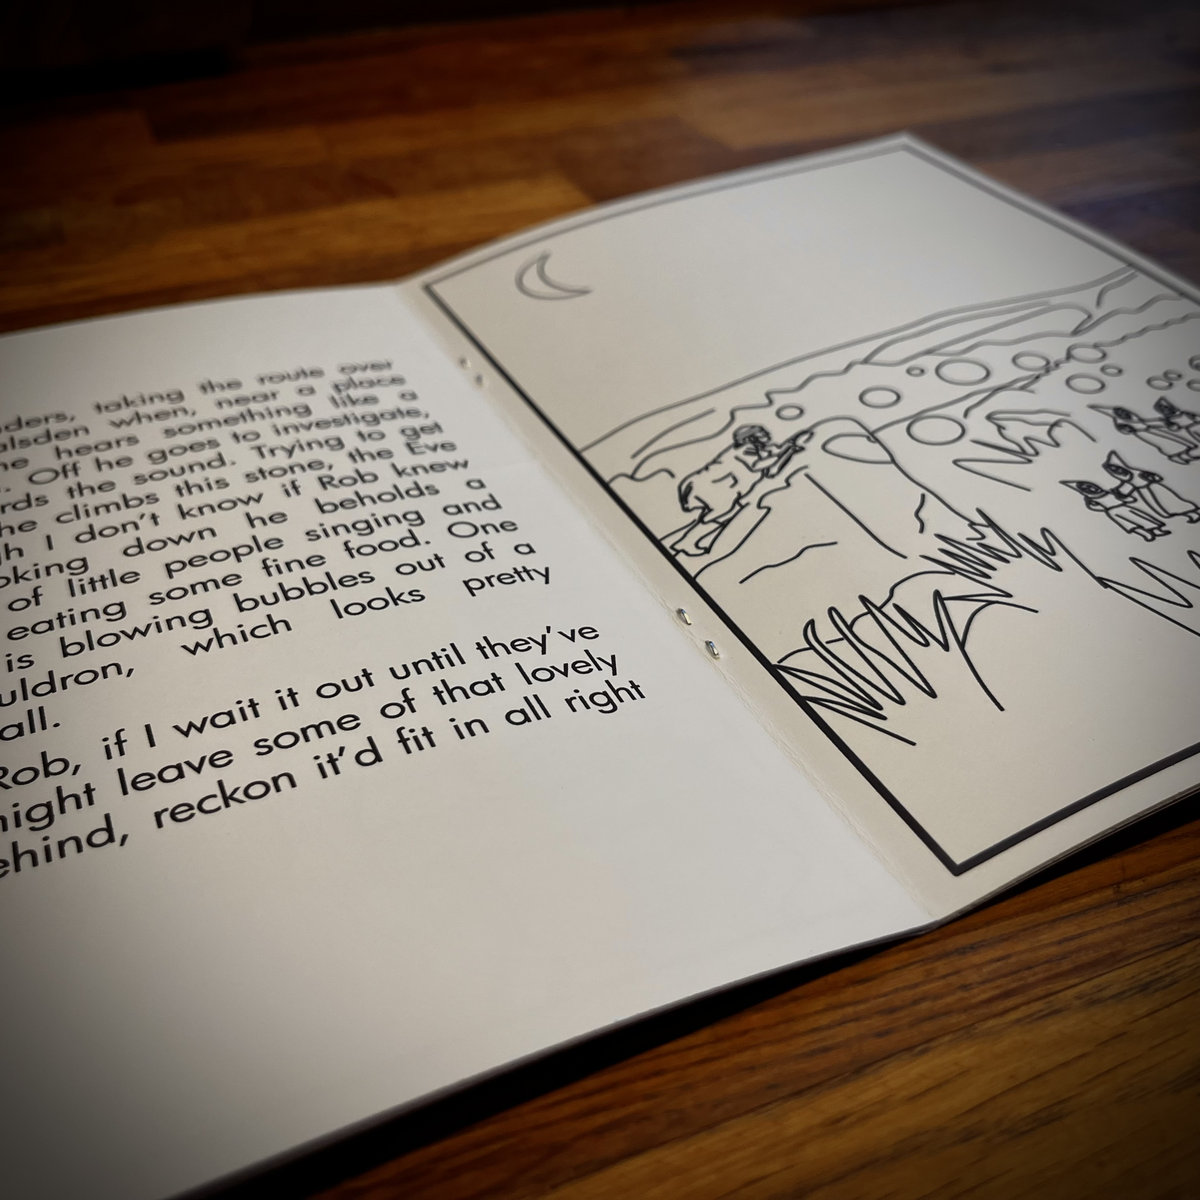 ders, taking the route over
alsden when, near a place
he hears something like a
. Off he goes to investigate,
rds the sound. Trying to get
he climbs this stone, the Eve
h I don't know if Rob knew
oking down he beholds a
of little people singing and
eating some fine food. One
is blowing bubbles out of a
uldron, which looks pretty
all.
Rob, if I wait it out until they've
night leave some of that lovely
ehind, reckon it'd fit in all right